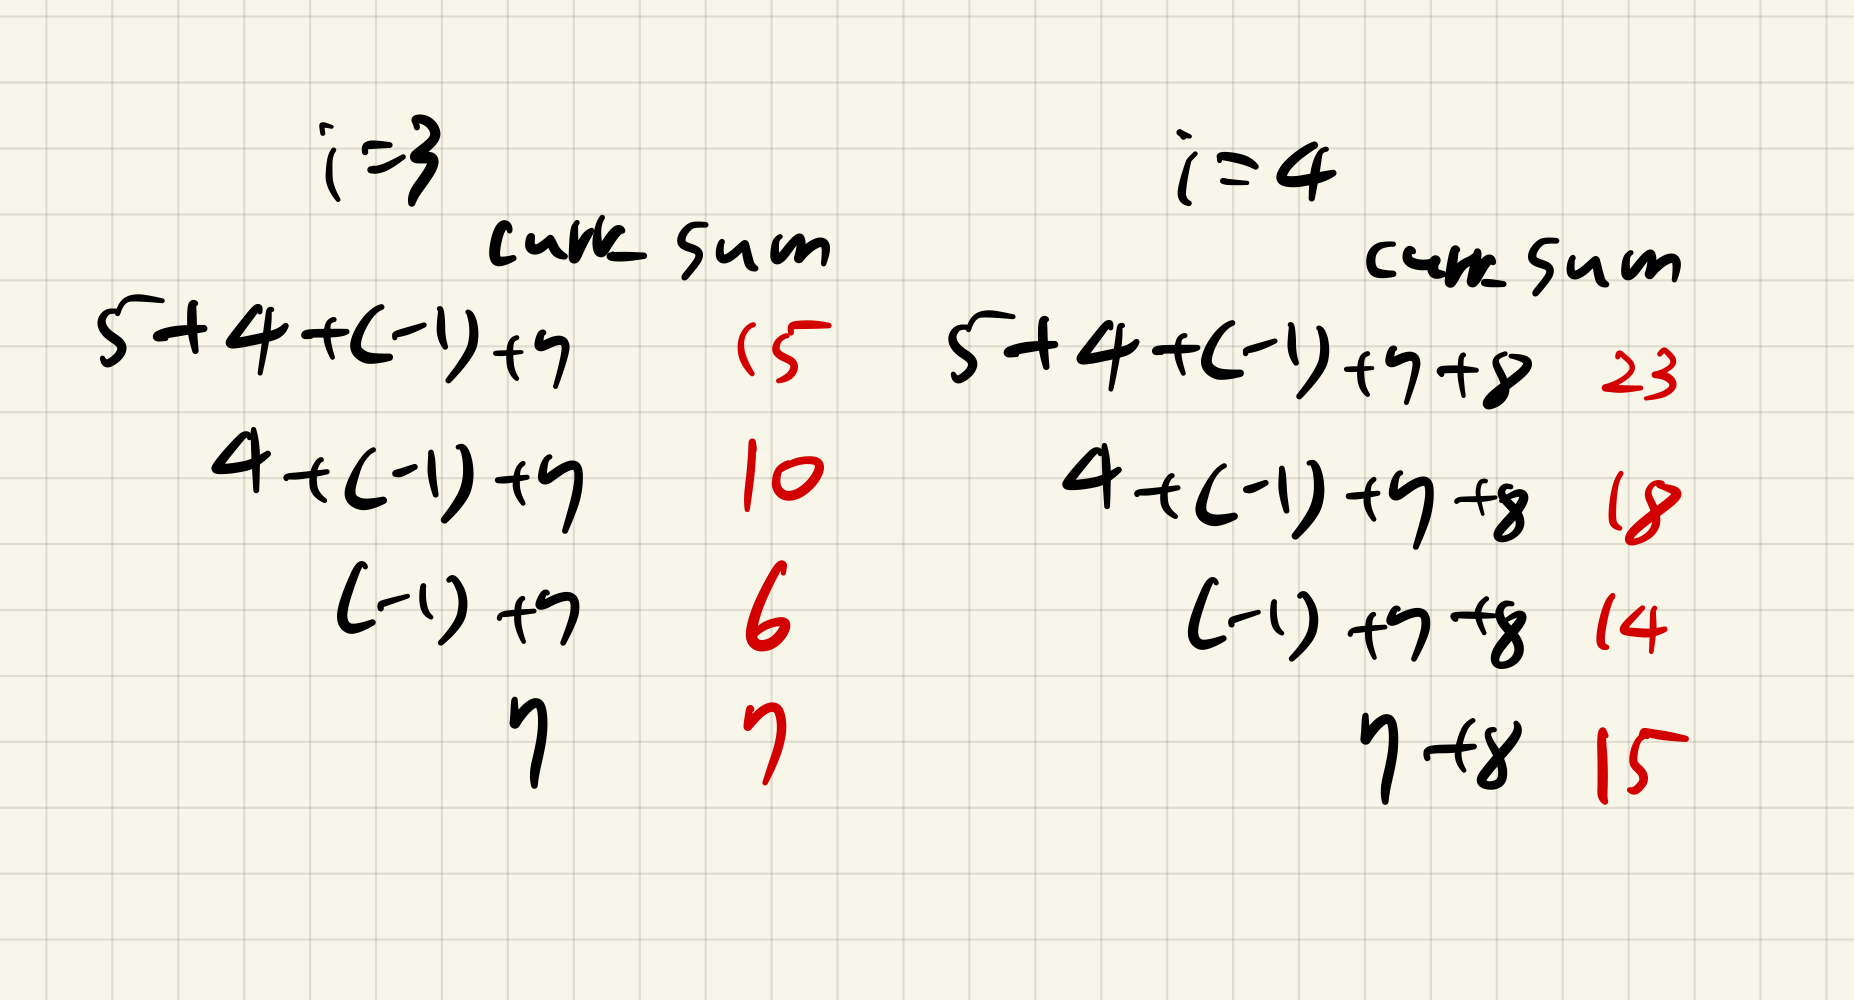 i=3
curr_sum
5+4+(-1)+7 15
4+(-1)+7 10
(-1)+7 6
7 7
i=4
curr_sum
5+4+(-1)+7+8 23
4+(-1)+7+8 18
(-1)+7+8 14
7+8 15